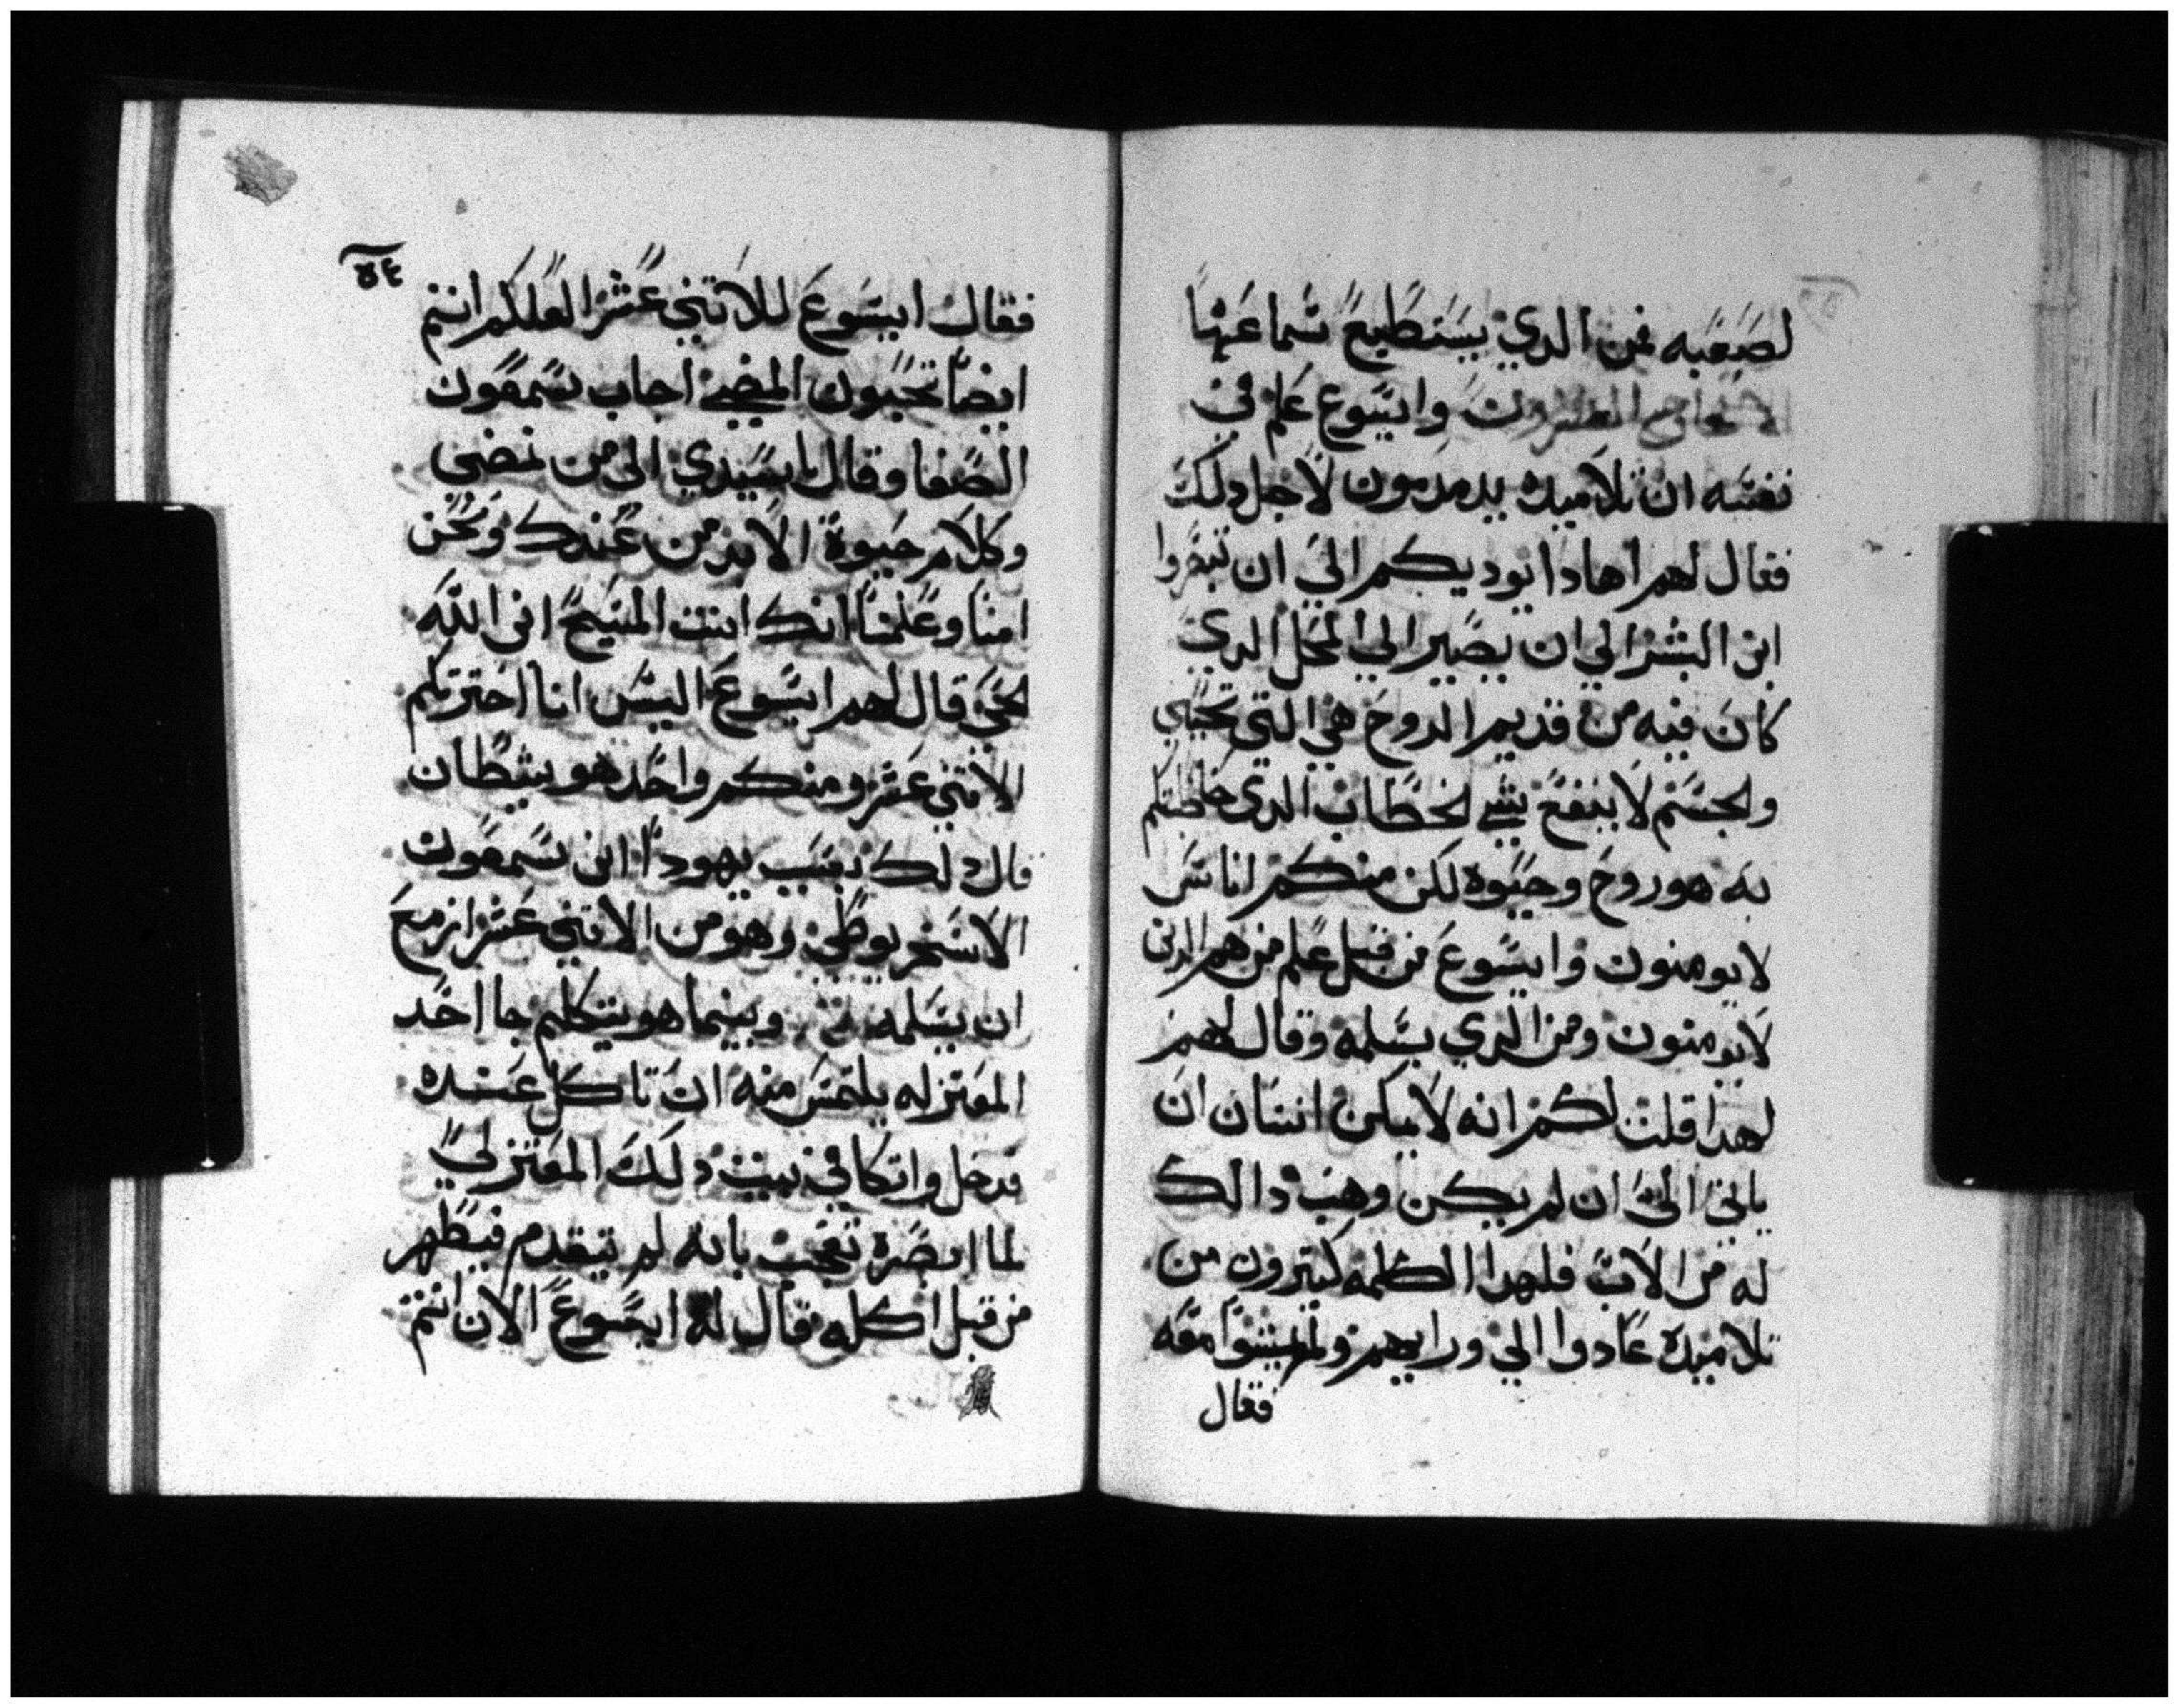 لصعبه فمن الدي يستطيع سماعها
الاصحاح العشرون وايسوع علم في
نفسه ان تلاميده يدمدمون لاجل دلك
فقال لهم اهادا يوديكم الي ان تبصروا
ابن البشر الي ان يصير الي المحل الدي
كان فيه من قديم الروح هي التي تحيي
والجسم لا ينفع بشي الخطاب الدي خاطبتكم
به هو روح وحيوه لكن منكم اناس
لا يومنون وايسوع من قبل علم من هم الدين
لا يومنون ومن الدي يسلمه وقال لهم
لهدا قلت لكم انه لا يمكن انسان ان
ياتي الي ان لم يكن وهب دالك
له من الاب فلهدا الكلمه كتيرون من
تلاميده عادوا الي ورايهم ولم يمشوا معه
فقال
٥٤
فقال ايسوع للاتني عشر العلكم انتم
ايضا تحبون المضي اجاب سمعون
الصفا وقال يا سيدي الى من نمضي
وكلام حيوة الابد من عندك ونحن
امنا وعلمنا انك انت المسيح ابن الله
الحي قال لهم ايسوع اليس انا اخترتكم
الاتني عشر ومنكم واحد هو شيطان
قال دلك بسبب يهودا ابن سمعون
الاسخريوطي وهو من الاتني عشر ازمع
ان يسلمه وبينما هو يتكلم جا احد
المعتزله يلتمس منه ان تاكل عنده
فدخل واتكا في بيت دلك المعتزلي
لما ابصره تعجب بانه لم يتقدم فيتطهر
من قبل اكله قال له ايسوع الان انتم